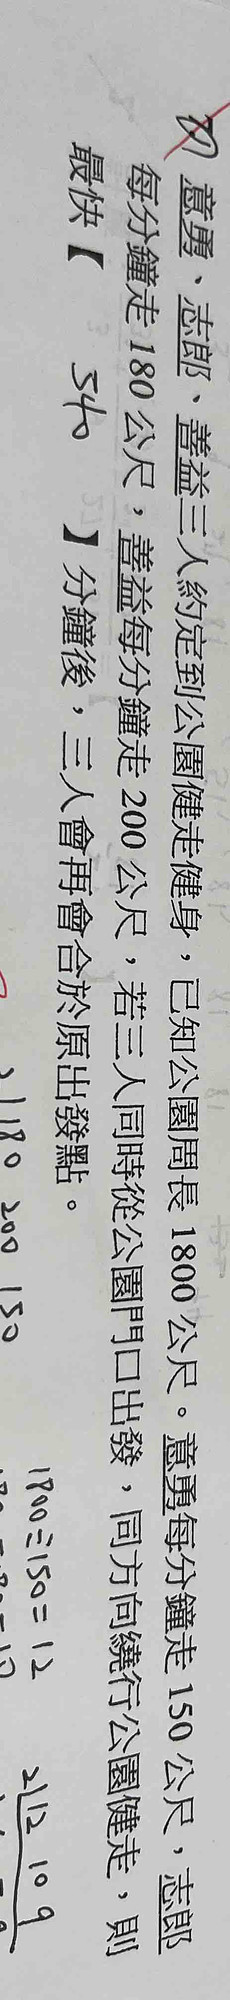 (7) 意勇、志郎、善益三人約定到公園健走健身，已知公園周長 1800 公尺。意勇每分鐘走 150 公尺，志郎
每分鐘走 180 公尺，善益每分鐘走 200 公尺，若三人同時從公園門口出發，同方向繞行公園健走，則
最快【 540 】分鐘後，三人會再會合於原出發點。
180 200 150
1800÷150=12
2|12 10 9